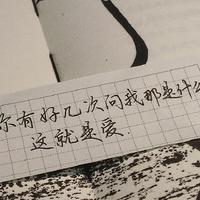 你有好几次问我那是什么
这就是爱.